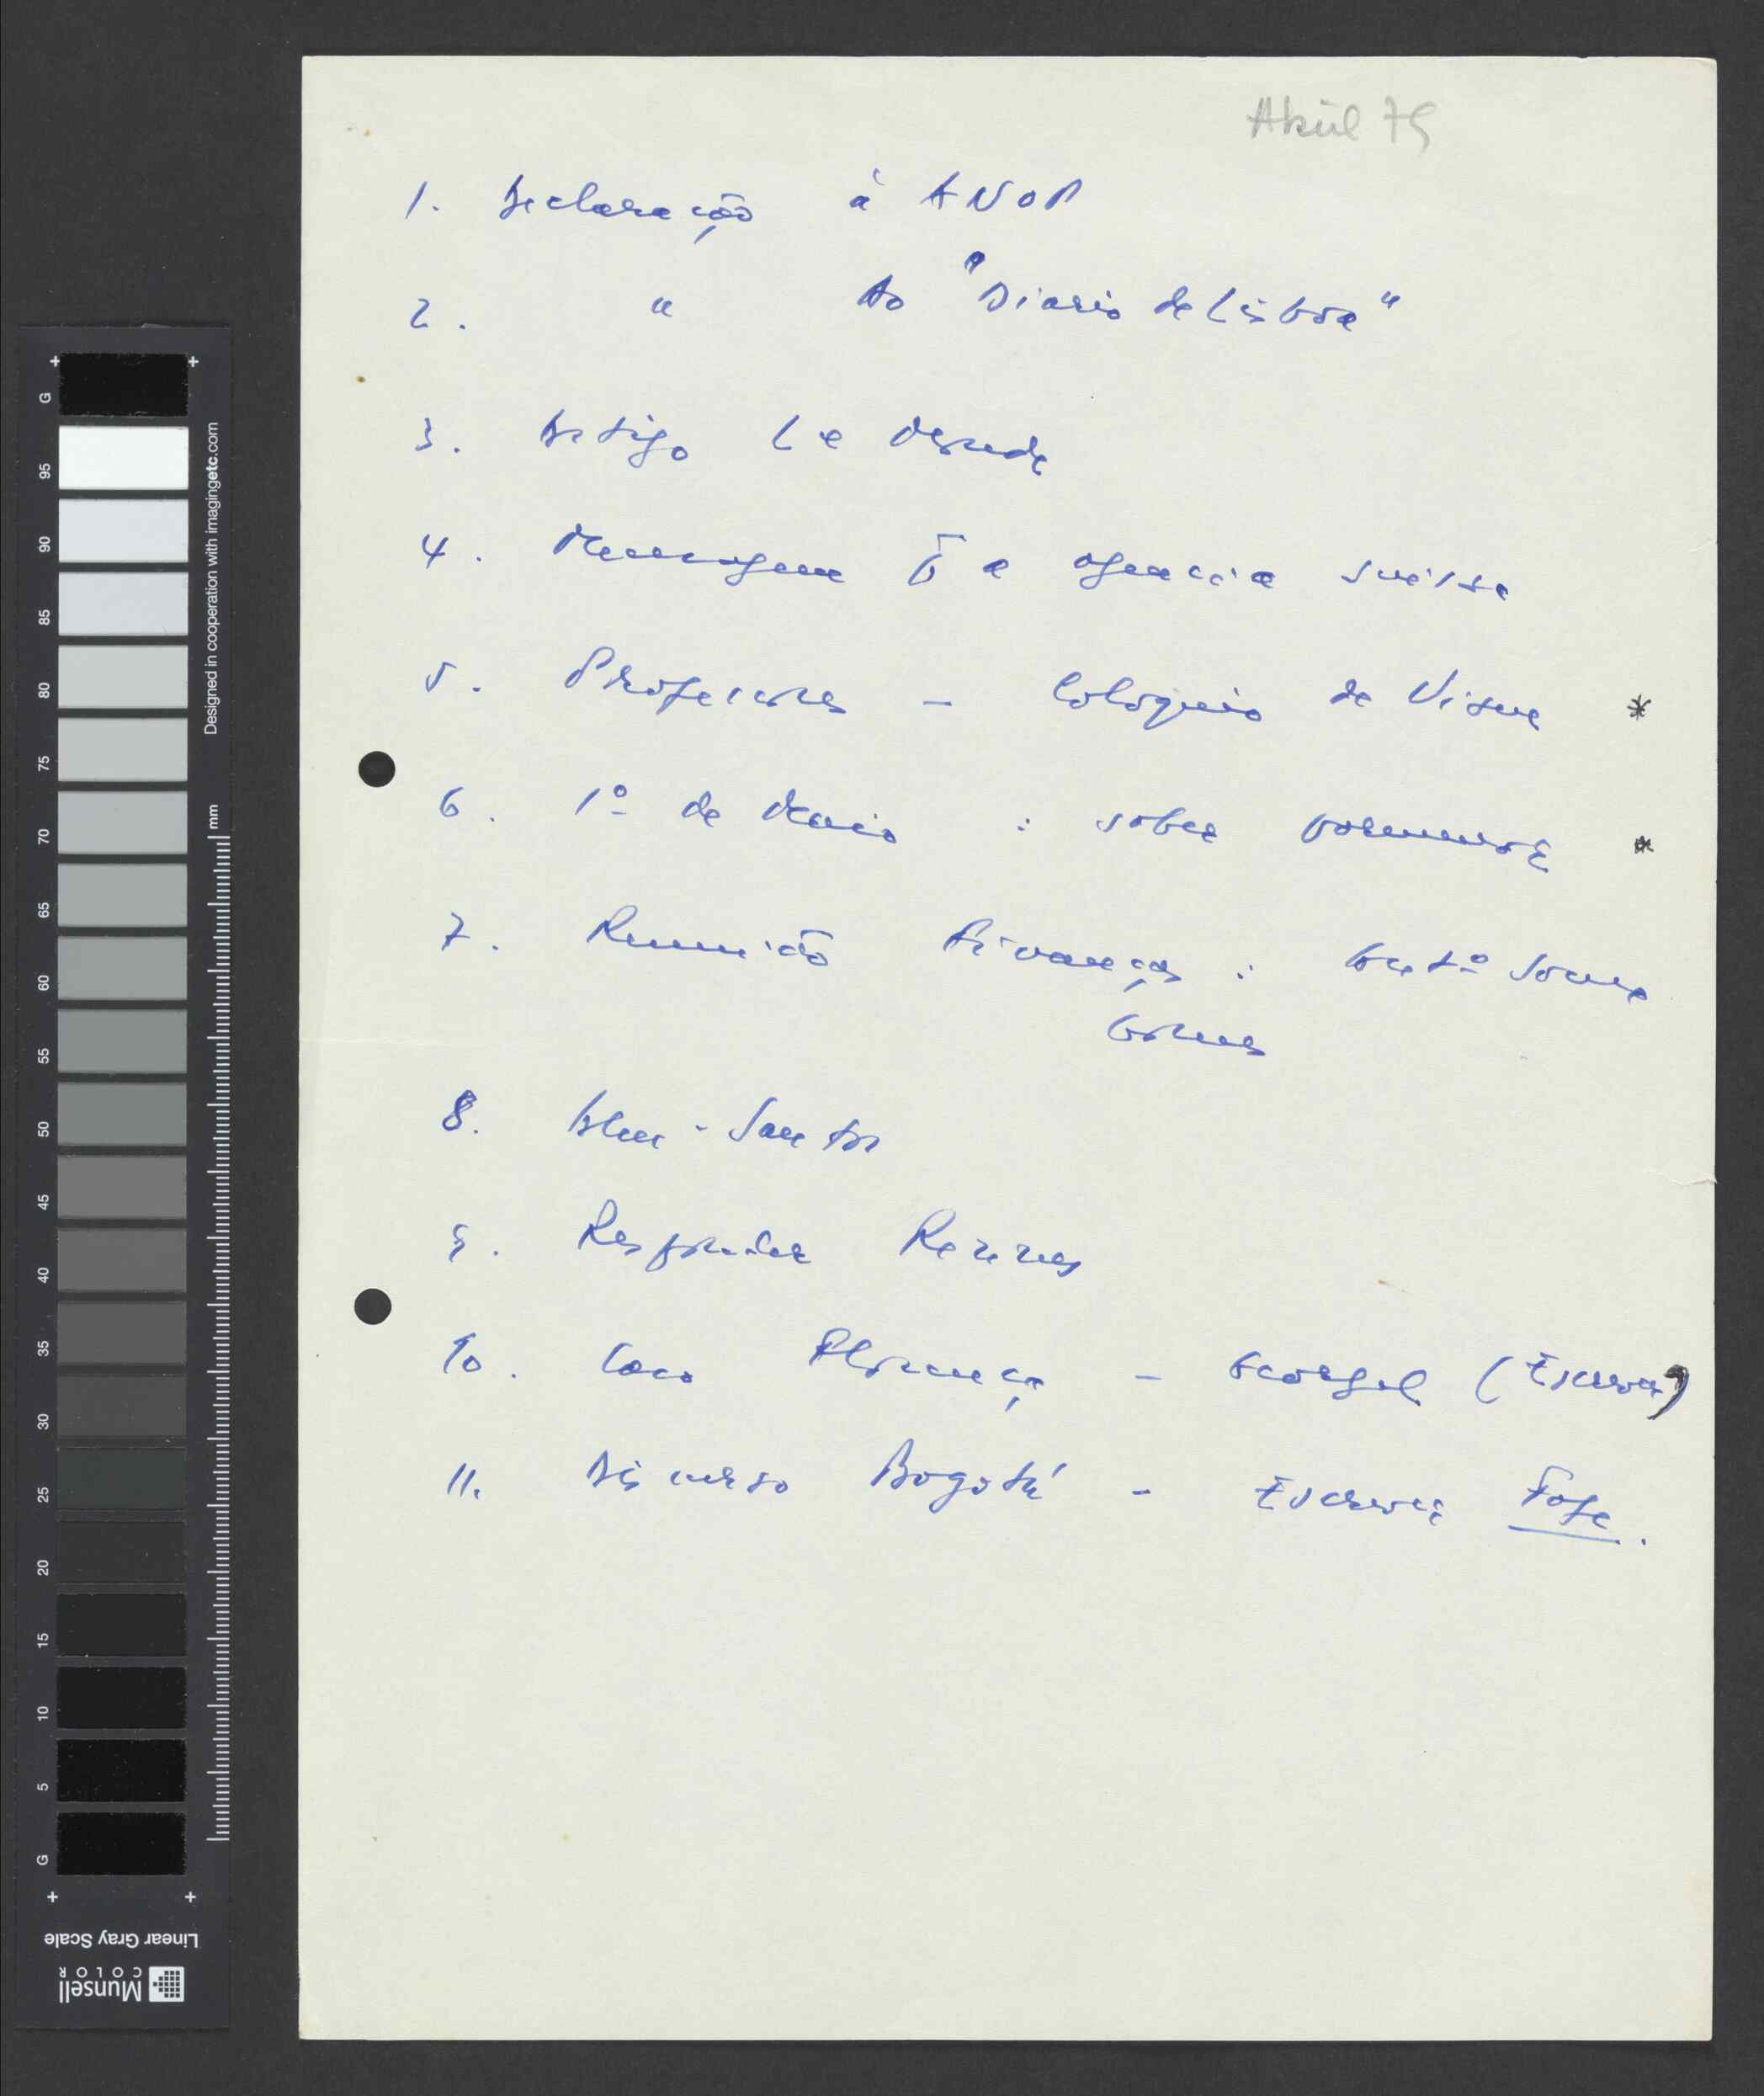 Abril 79
1. Declaração à ANOP
2. " Ao "Diario de Lisboa"
3. Artigo Le Monde
4. Mensagem p a agencia suissa
5. Professores - Coloquio de Viseu *
6. 1º de Maio : sobre *
7. Reunião Finanças : Antº Sousa
Gomes
8. Alm. Santos
9. Responder Rennes
10. Caso Florença - (Escrever)
11. Discurso Bogotá - Escrever Fase.
G
95
90
85
80
75
70
65
60
55
50
45
40
35
30
25
20
15
10
5
G
mm
Designed in cooperation with imagingetc.com
Linear Gray Scale
Munsell
COLOR